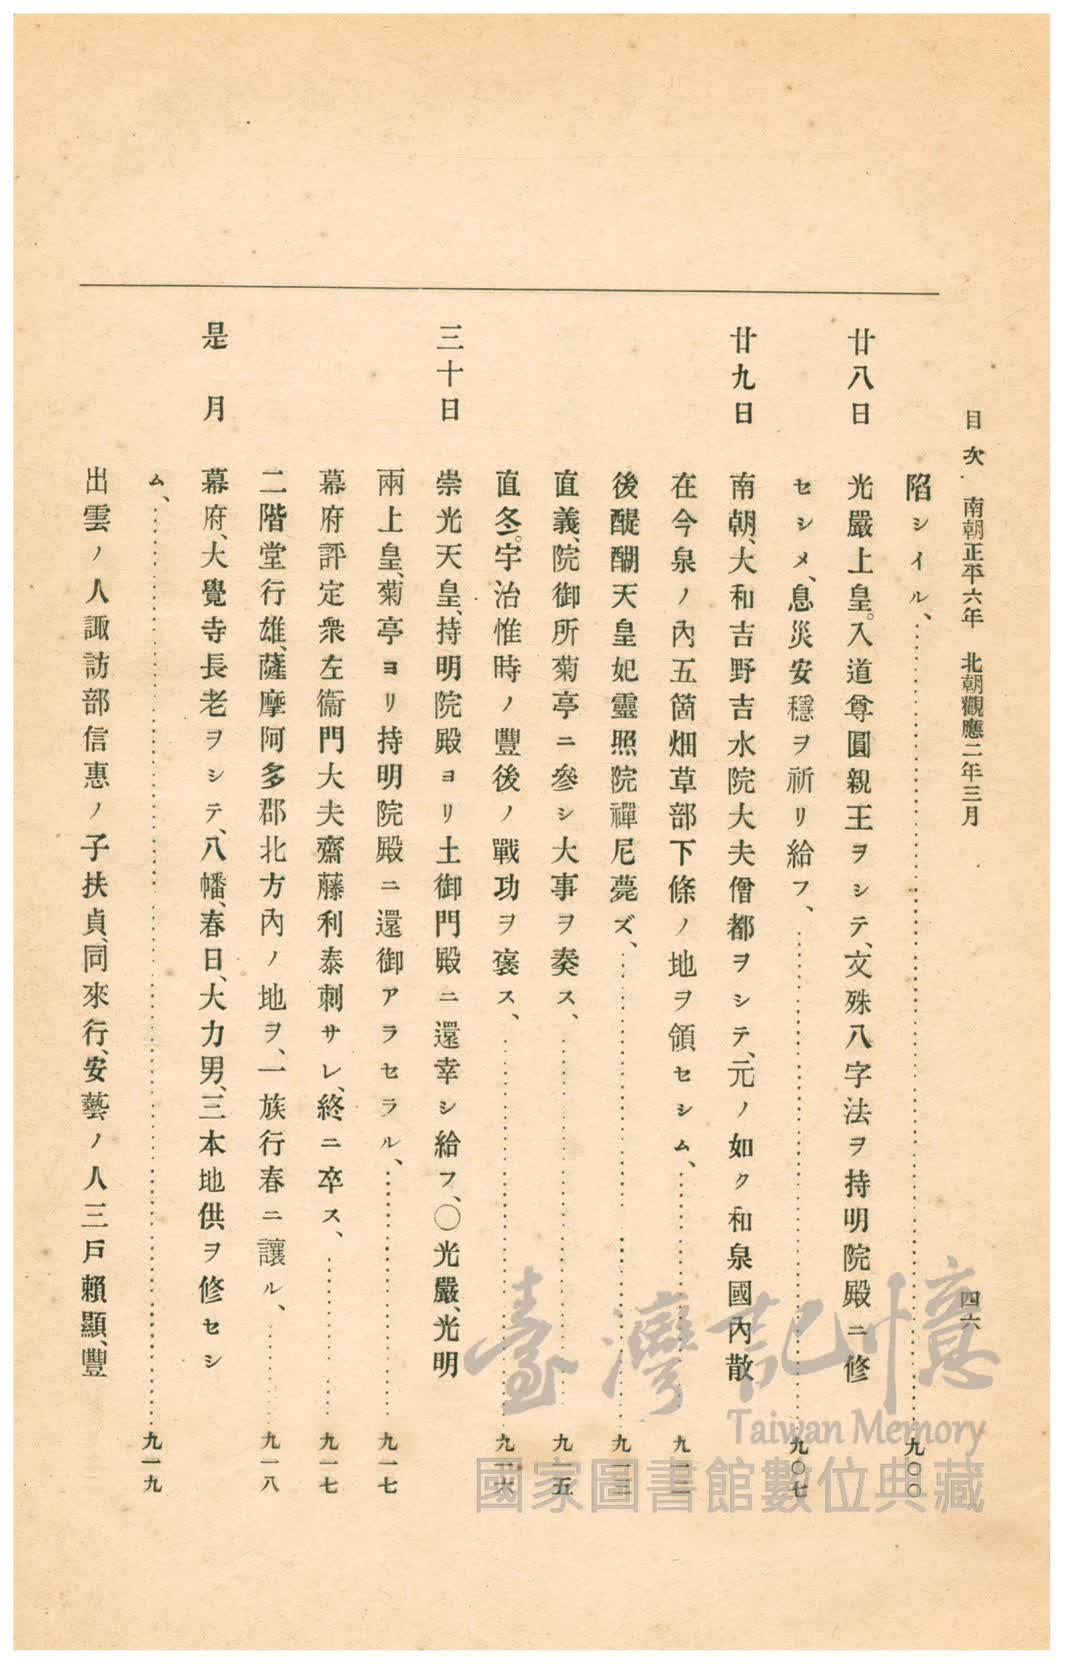 目次　南朝正平六年　北朝觀應二年三月　四六
陷シイル、……九〇〇
廿八日　光嚴上皇。入道尊圓親王ヲシテ、文殊八字法ヲ持明院殿ニ修
セシメ、息災安穩ヲ祈リ給フ、……九〇七
廿九日　南朝、大和吉野吉水院大夫僧都ヲシテ、元ノ如ク和泉國內散
在今泉ノ內五箇畑草部下條ノ地ヲ領セシム、……九一二
後醍醐天皇妃靈照院禪尼薨ズ、……九一三
直義、院御所菊亭ニ參シ大事ヲ奏ス、……九一五
直冬。宇治惟時ノ豐後ノ戰功ヲ褒ス、……九一六
三十日　崇光天皇、持明院殿ヨリ土御門殿ニ還幸シ給フ、〇光嚴、光明
兩上皇、菊亭ヨリ持明院殿ニ還御アラセラル、……九一七
幕府評定衆左衞門大夫齋藤利泰刺サレ、終ニ卒ス、……九一七
二階堂行雄、薩摩阿多郡北方內ノ地ヲ、一族行春ニ讓ル、……九一八
是月　幕府、大覺寺長老ヲシテ、八幡、春日、大力男、三本地供ヲ修セシ
ム、……九一九
出雲ノ人諏訪部信惠ノ子扶貞、同來行、安藝ノ人三戶賴顯、豐
臺灣記憶
Taiwan Memory
國家圖書館數位典藏